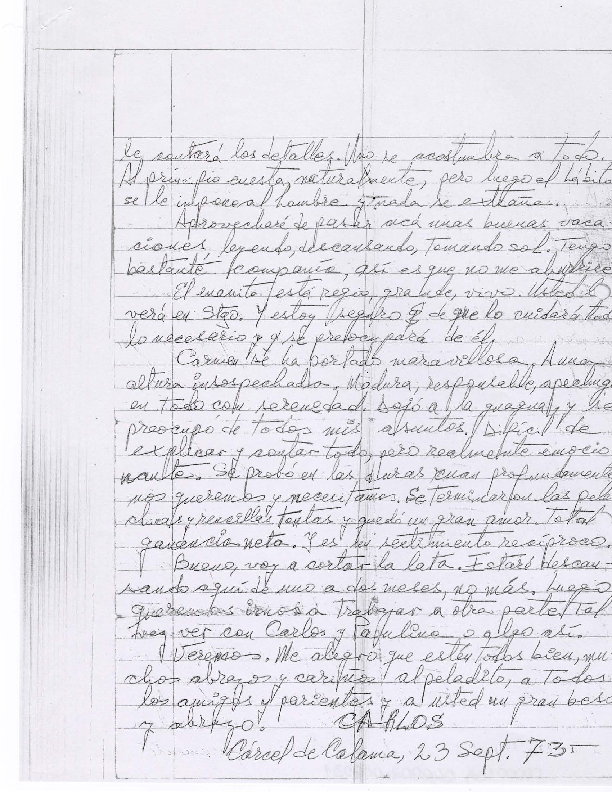 le contará los detalles. Uno se acostumbra a todo.
Al principio cuesta, naturalmente, pero luego el hábito
se le impone al hombre y nada se extraña.
Aprovecharé de pasar acá unas buenas vaca-
ciones, leyendo, descansando, tomando sol. Tengo
bastante compañía, así es que no me aburriré
El enanito está regio, grande, vivo. Usted lo
verá en Stgo. Y estoy seguro de que lo cuidará todo
lo necesario y se preocupará de él.
Carmen se ha portado maravillosa. A una
altura insospechada. Madura, responsable, apechug
en todo con serenedad. Dejó a la guagua, y se
preocupó de todos mis asuntos. Difícil de
explicar y contar todo, pero realmente emocio
nante. Se probó en las duras cuan profundamente
nos queremos y necesitamos. Se terminaron las pele
chicas y rencillas tontas y quedó un gran amor. Total
ganancia neta. Y es mi sentimiento recíproco.
Bueno, voy a cortar la lata. Estaré descan-
sando aquí de uno a dos meses, no más. Luego
queremos irnos a trabajar a otra parte, tal
vez ver con Carlos y Paulina o algo así.
Veremos. Me alegro que estén todos bien, mu
chos abrazos y cariños al peladito, a todos
los amigos y parientes y a usted un gran beso
y abrazo. CARLOS
Cárcel de Calama, 23 Sept. 73-